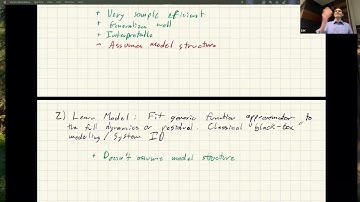 + Very sample efficient
+ Generalizes well
+ Interpretable
- Assumes model structure
2) Learn Model: Fit generic function approximator to
the full dynamics or residual. Classical "black-box"
modeling / System ID
+ Doesn't assume model structure